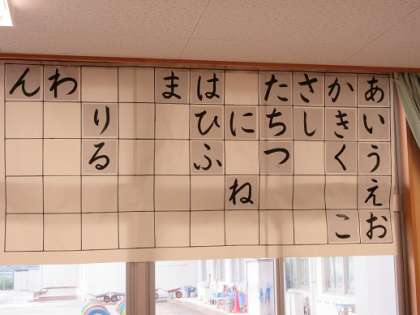 あいうえお
かきくこ
さし
たちつ
にね
はひふ
ま
りる
わ
ん